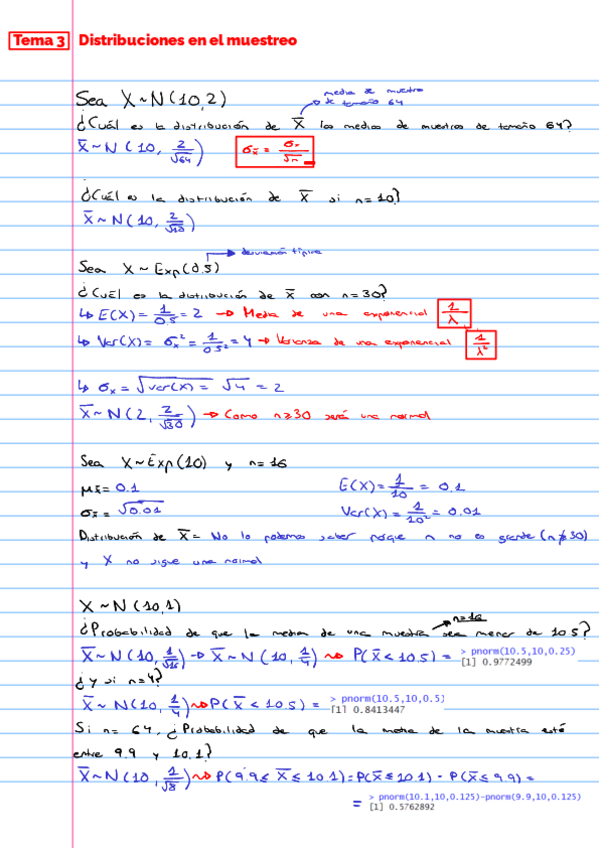 Tema 3 Distribuciones en el muestreo
media de muestra
de tamaño 64
Sea X~N(10,2)
¿Cuál es la distribución de X̅ las medias de muestras de tamaño 64?
X̅~N(10, 2/√64) σx̅ = σx/√n
¿Cuál es la distribución de X̅ si n=10?
X̅~N(10, 2/√10)
→ desviación típica
Sea X~Exp(0.5)
¿Cuál es la distribución de x̅ con n=30?
↳ E(X)= 1/0.5 = 2 → Media de una exponencial 1/λ
↳ Var(X)= σx² = 1/0.5² = 4 → Varianza de una exponencial 1/λ²
↳ σx = √var(x) = √4 = 2
X̅~N(2, 2/√30) → Como n≥30 será una normal
Sea X~Exp(10) y n=16
μx̅ = 0.1 E(X)= 1/10 = 0.1
σx̅ = √0.01 Var(X)= 1/10² = 0.01
Distribución de X̅ = No lo podemos saber porque n no es grande (n≱30)
y X no sigue una normal
X~N(10,1)
n=16
¿Probabilidad de que la media de una muestra sea menor de 10.5?
X̅~N(10, 1/√16) → X̅~N(10, 1/4) → P(X̅<10.5) = > pnorm(10.5,10,0.25)
[1] 0.9772499
¿y si n=4?
X̅~N(10, 1/4) → P(X̅<10.5) = > pnorm(10.5,10,0.5)
[1] 0.8413447
Si n=64, ¿Probabilidad de que la media de la muestra esté
entre 9.9 y 10.1?
X̅~N(10, 1/√8) → P(9.9≤X̅≤10.1)=P(X̅≤10.1)-P(X̅≤9.9)=
= > pnorm(10.1,10,0.125)-pnorm(9.9,10,0.125)
[1] 0.5762892